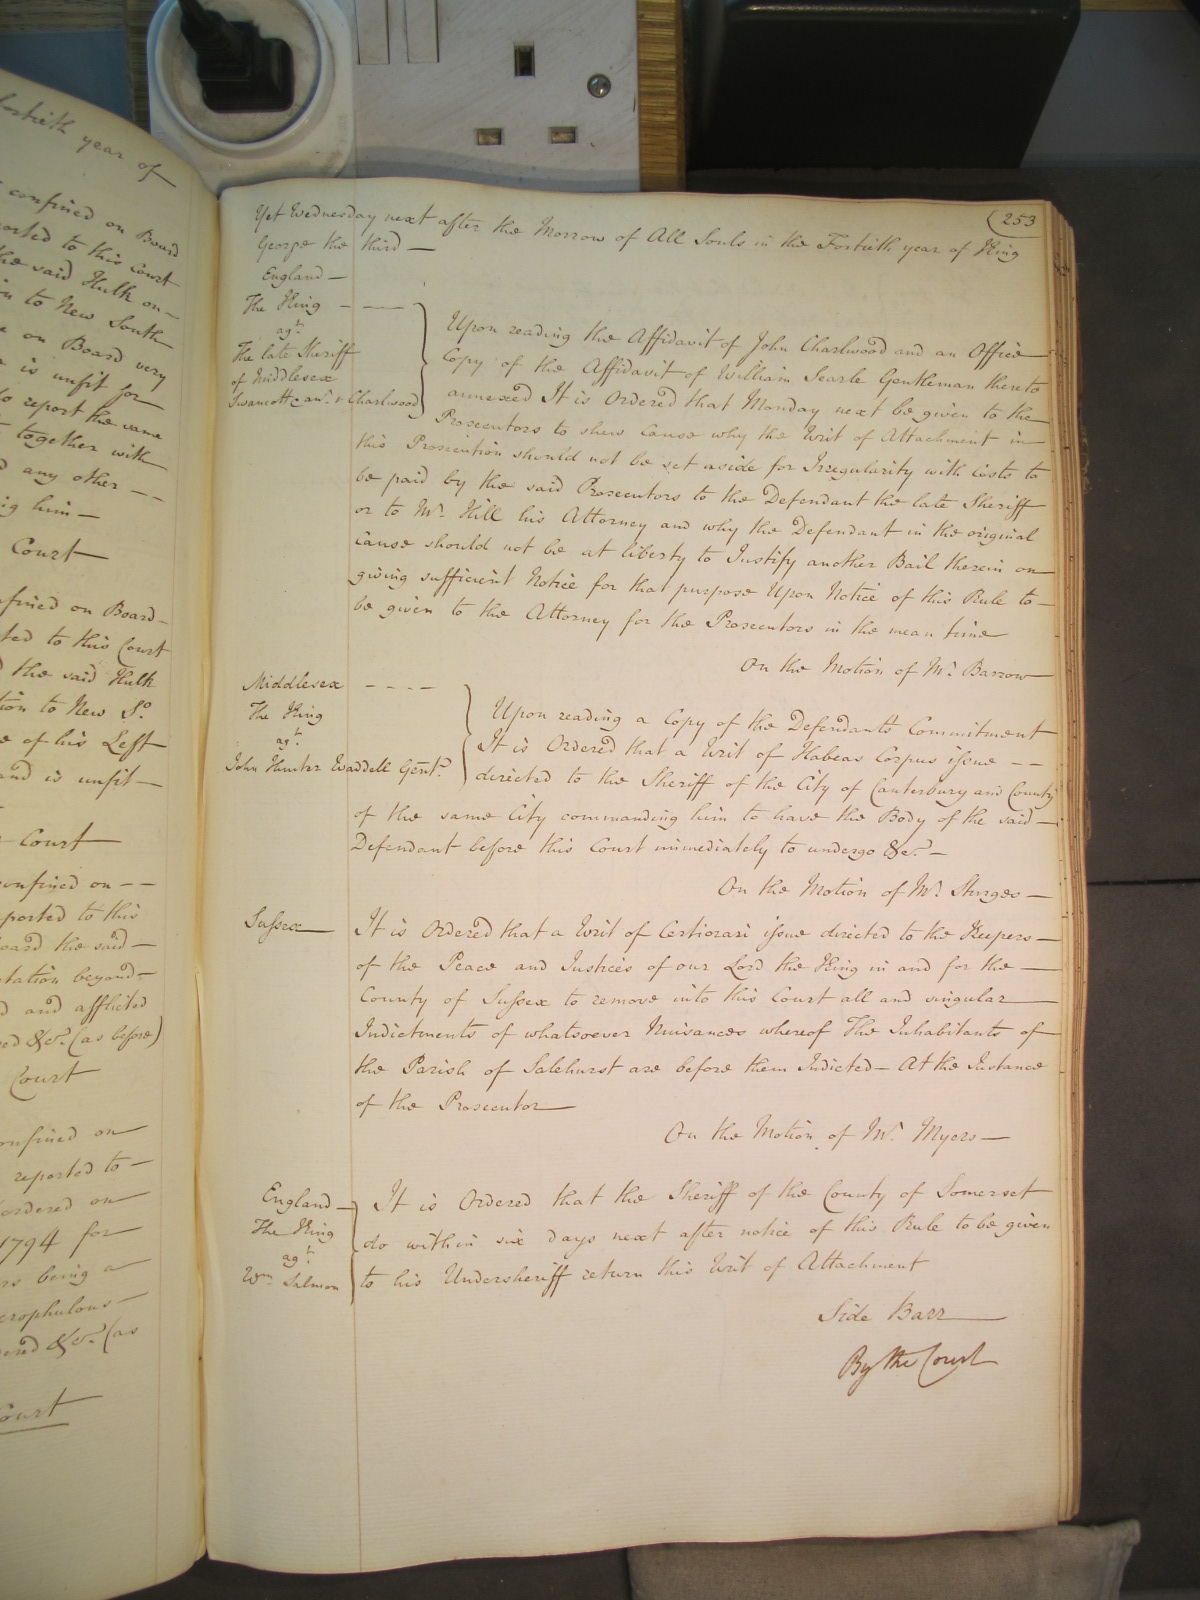 fortieth year of
confined on Board
ported to this Court
the said Hulk on
to New South
on Board very
is unfit for
to report the same
together with
any other
him
Court
confined on Board
ted to this Court
the said Hulk
tion to New So.
of his Left
and is unfit
Court
confined on
ported to this
oard the said
tation beyond
and afflicted
&c. (as before)
Court
confined on
reported to
ordered on
1794 for
being a
scrophulous
&c. (as
Court
253
Yet Wednesday next after the Morrow of All Souls in the Fortieth year of King
George the third
England
The King
agt.
The late Sheriff
of Middlesex
Swancott & anr. v Charlwood
Upon reading the Affidavit of John Charlwood and an Office
Copy of the Affidavit of William Searle Gentleman thereto
annexed It is Ordered that Monday next be given to the
Prosecutors to shew Cause why the Writ of Attachment in
this Prosecution should not be set aside for Irregularity with Costs to
be paid by the said Prosecutors to the Defendant the late Sheriff
or to Mr. Hill his Attorney and why the Defendant in the original
Cause should not be at liberty to Justify another Bail therein on
giving sufficient Notice for that purpose Upon Notice of this Rule to
be given to the Attorney for the Prosecutors in the mean time
On the Motion of Mr. Barrow
Middlesex
The King
agt.
John Hunter Waddell Gent.
Upon reading a Copy of the Defendants Commitment
It is Ordered that a Writ of Habeas Corpus issue
directed to the Sheriff of the City of Canterbury and County
of the same City commanding him to have the Body of the said
Defendant before this Court immediately to undergo &c.
On the Motion of Mr. Sturges
Sussex
It is Ordered that a Writ of Certiorari issue directed to the Keepers
of the Peace and Justices of our Lord the King in and for the
County of Sussex to remove into this Court all and singular
Indictments of whatsoever Nuisances whereof The Inhabitants of
the Parish of Salehurst are before them Indicted - At the Instance
of the Prosecutor
On the Motion of Mr. Myers
England
The King
agt.
Wm. Salmon
It is Ordered that the Sheriff of the County of Somerset
do within six days next after notice of this Rule to be given
to his Undersheriff return this Writ of Attachment
Side Barr
By the Court